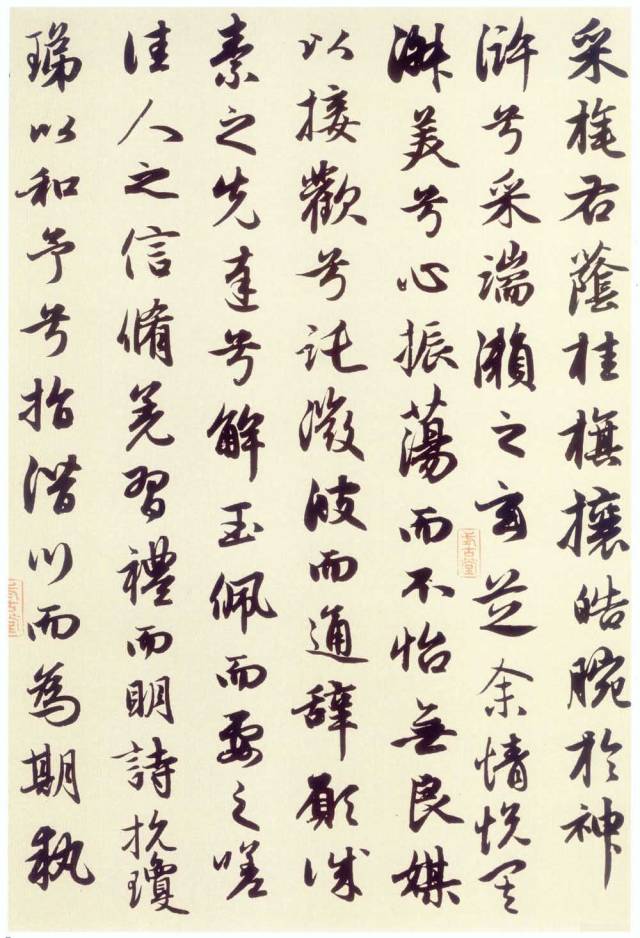 采旄右蔭桂旗攘皓腕於神
滸兮采湍瀨之玄芝余情悅其
淑美兮心振蕩而不怡無良媒
以接歡兮託微波而通辭願誠
素之先達兮解玉佩而要之嗟
佳人之信脩羌習禮而明詩抗瓊
珶以和予兮指潛川而為期執